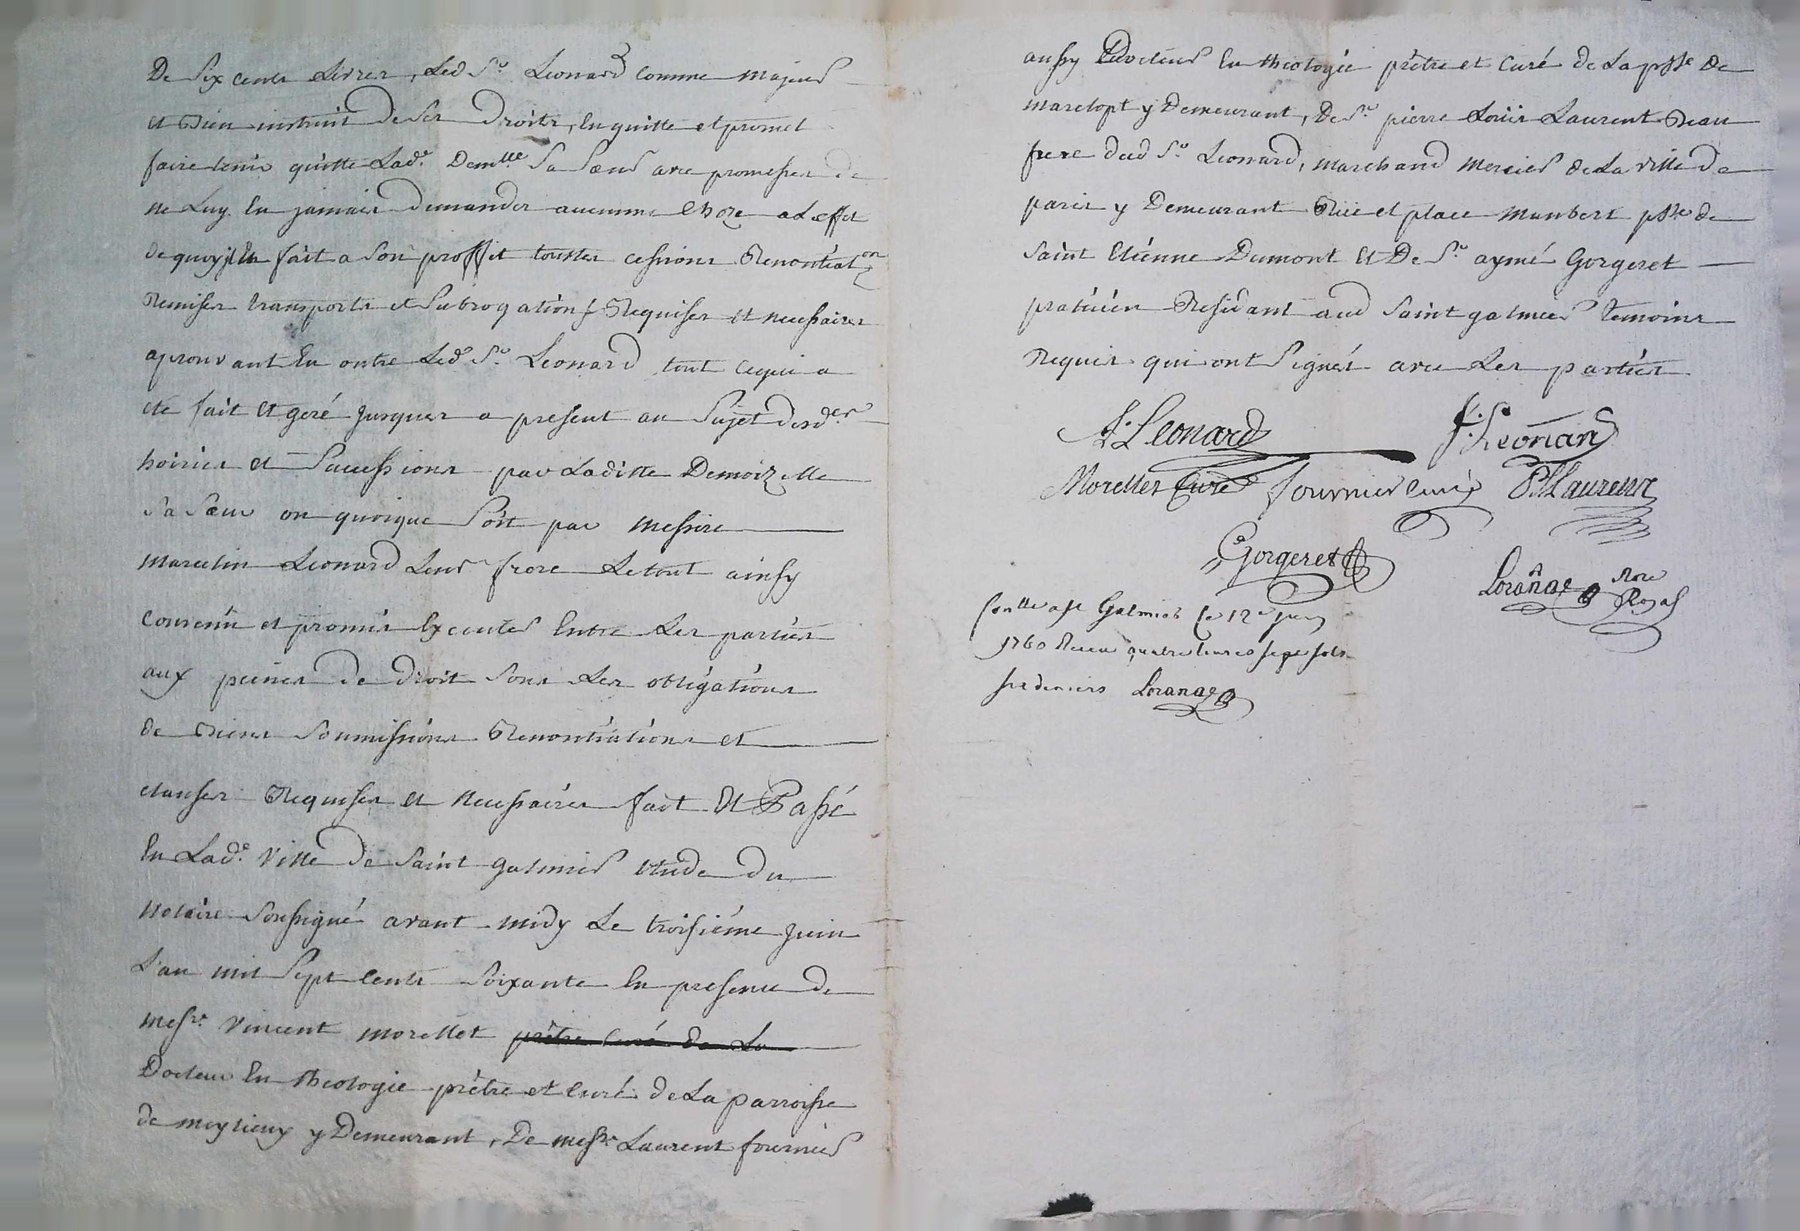 De Six cents Livres, Led Sr. Leonard comme majeur
et Bien instruit de Ses Droits, En quitte et promet
faire tenir quitte Lade. Demlle Sa Sœur avec promesses de
ne Luy En jamais demander aucunne Choze a L'effet
de quoy il En fait a Son proffit touttes cessions Renontiaton
Remises transports et Subrogations Requises et necessaires
aprouvant En outre Led. Sr. Leonard tout cequi a
eté fait et geré jusques a present au Sujet desdes.
hoiries et Successions par Laditte Demoizelle
Sa Sœur ou quoique Soit par Messire
Marcelin Leonard Leur frere Le tout ainsy
Convenu et promis Executer Entre Les parties
aux peines de droit Sous Les obligations
de Biens Soumissions Renontiations et
clauses Requises et Necessaires fait Et Passé
En Lade. Ville de Saint galmier Etude du
Notaire Soussigné avant midy Le troisiéme juin
L'an mil Sept Cents Soixante En presence de
Messr. Vincent Morellet prêtre Curé de La
Docteur En theologie prêtre et Curé de La parroisse
de meylieux y Demeurant, De Messr. Laurent fournier
aussy Docteur En theologie prêtre et Curé de La psse de
Marclopt y Demeurant, De Sr. pierre Loüis Laurent Beau
frere dud Sr. Leonard, Marchand Mercier de La Ville de
paris y Demeurant Rüe et place Maubert psse de
Saint Etiénne Dumont Et De Sr. aymé Gorgeret
praticien Residant aud Saint galmier temoins
Requis qui ont Signés avec Les parties
Leonard F. Leonard
Morellet Curé fournier curé P. L. Laurent
Gorgeret
Lorange Nore Royal
Conlle a St Galmier Le 12e juin
1760 Receu quatre livres sept sols
six deniers Lorange